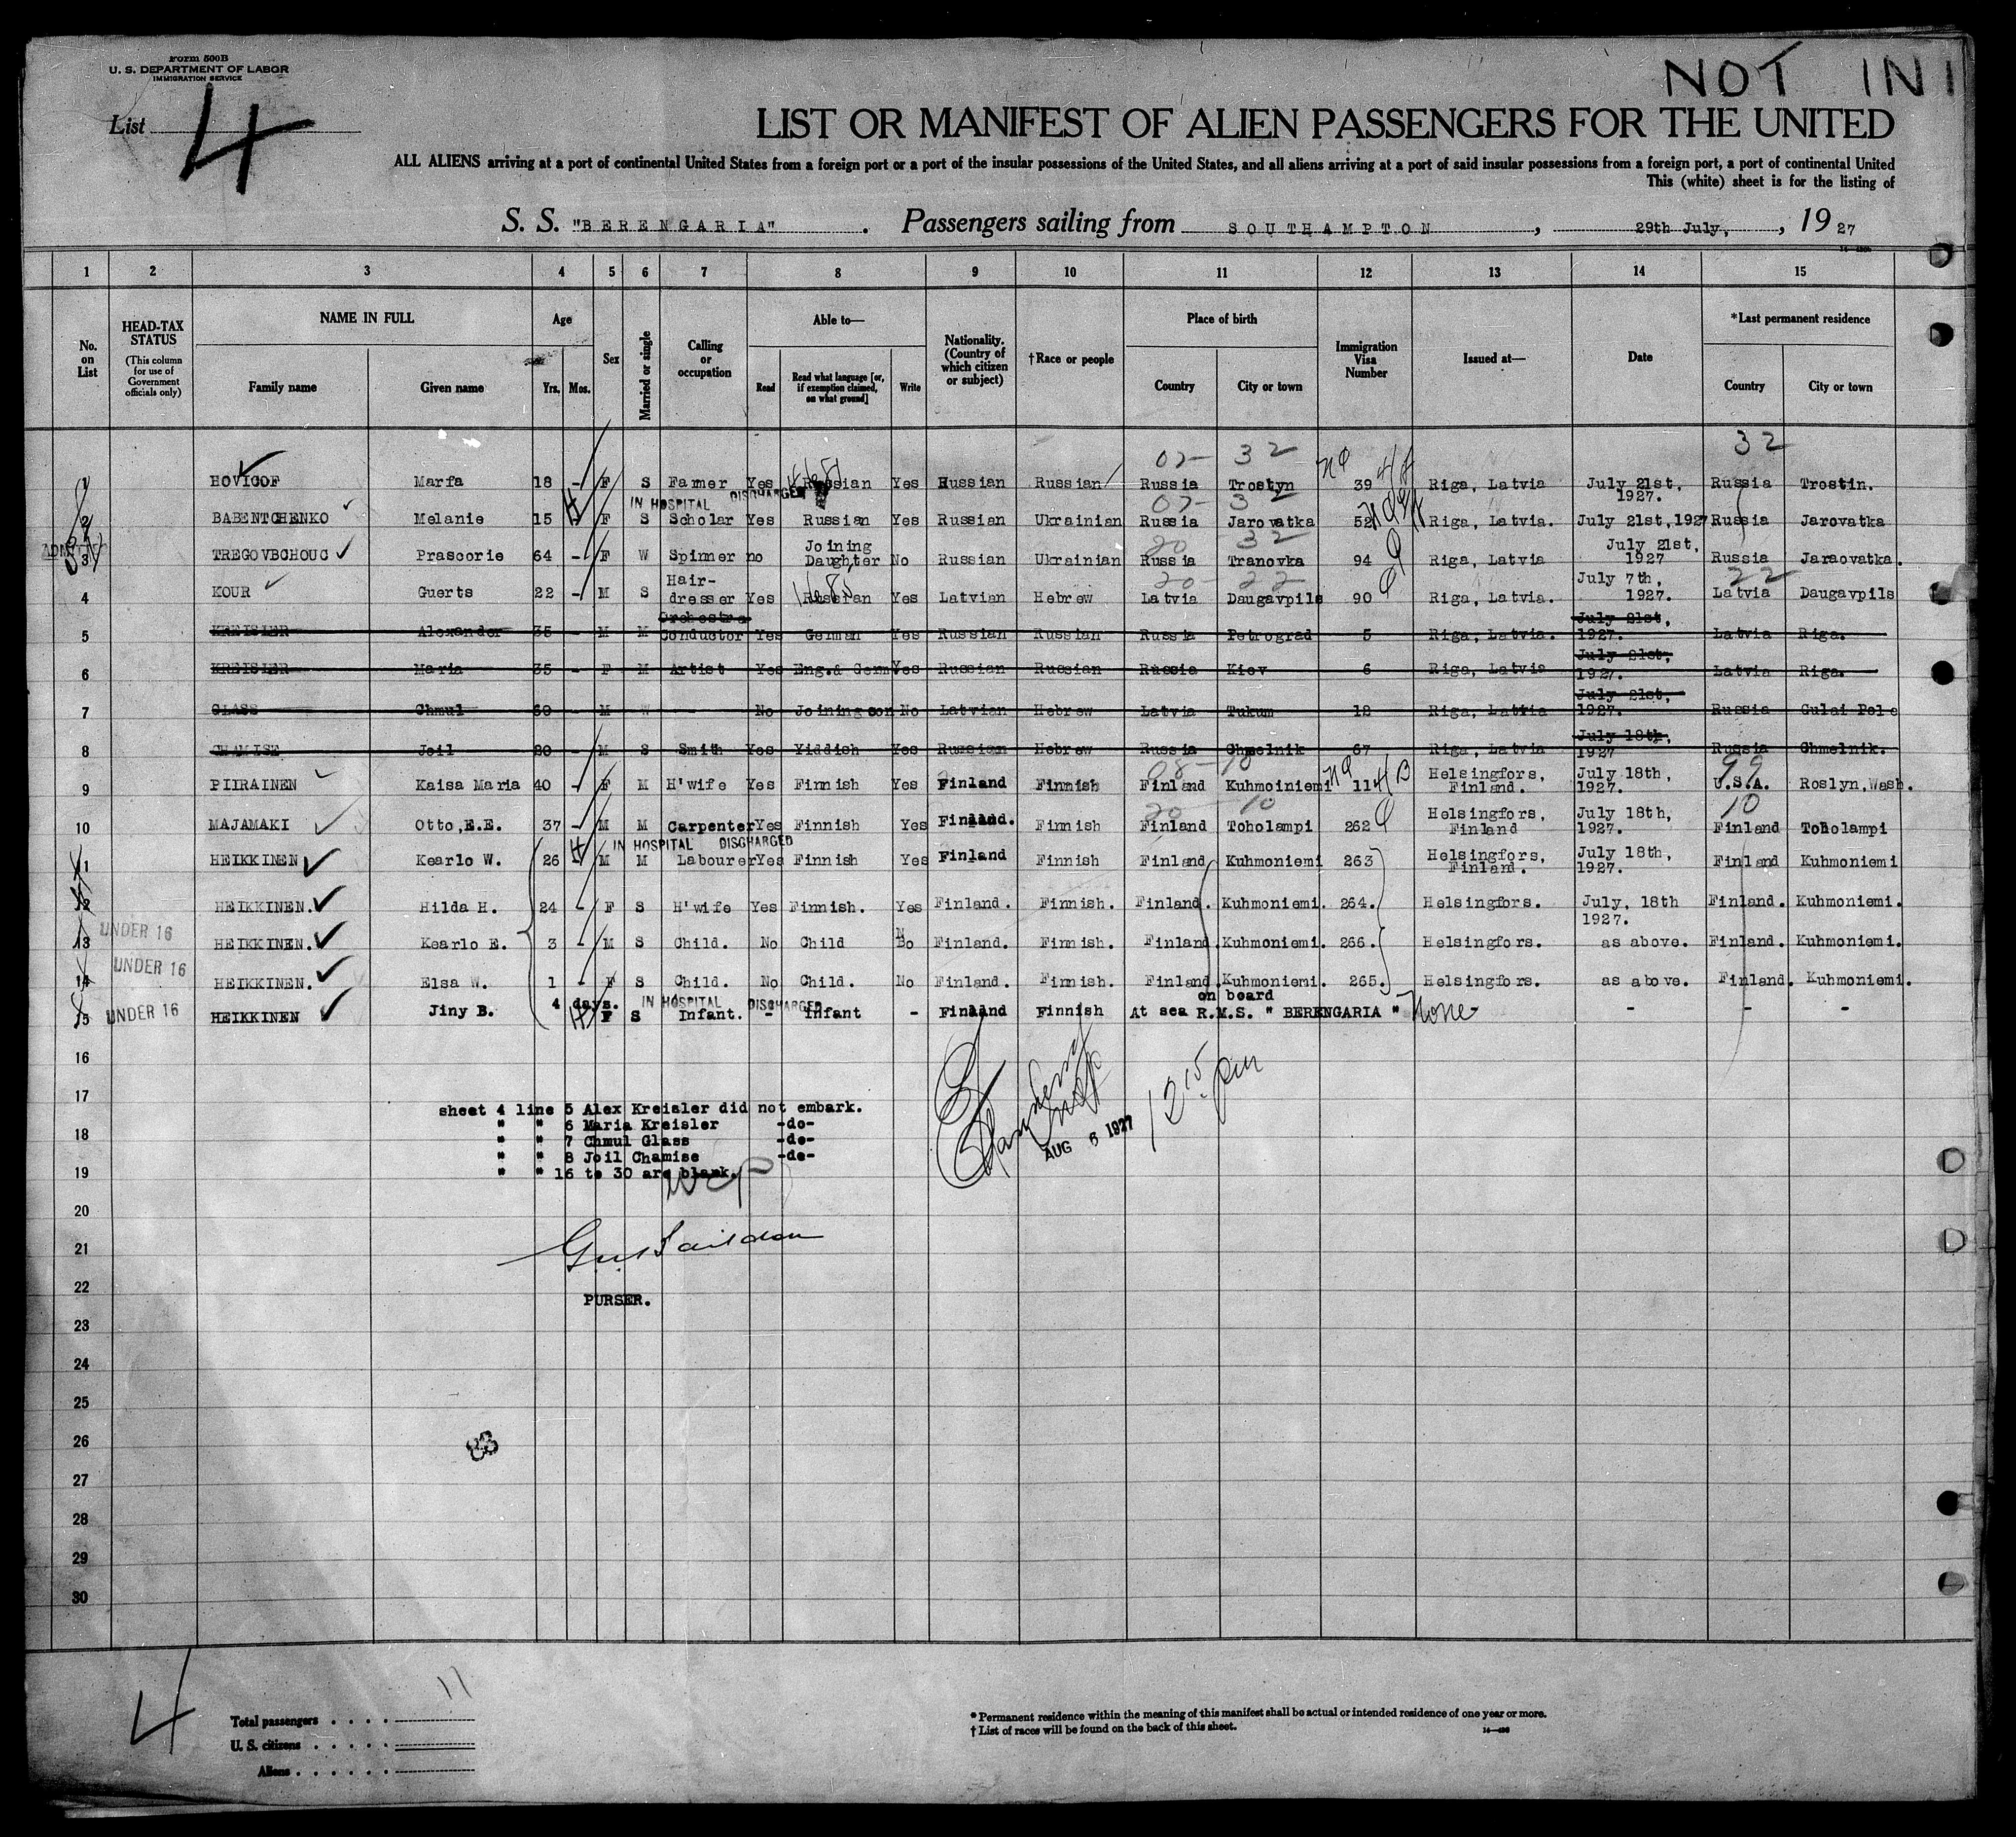 Form 500B
U. S. DEPARTMENT OF LABOR
IMMIGRATION SERVICE
NOT IN
List 4
LIST OR MANIFEST OF ALIEN PASSENGERS FOR THE UNITED
ALL ALIENS arriving at a port of continental United States from a foreign port or a port of the insular possessions of the United States, and all aliens arriving at a port of said insular possessions from a foreign port, a port of continental United
This (white) sheet is for the listing of
S. S. "BERENGARIA" . Passengers sailing from SOUTHAMPTON , 29th July, , 19 27
1 2 3 4 5 6 7 8 9 10 11 12 13 14 15
No. on List
HEAD-TAX STATUS (This column for use of Government officials only)
NAME IN FULL
Family name Given name
Age
Yrs. Mos.
Sex
Married or single
Calling or occupation
Able to—
Read Read what language [or, if exemption claimed, on what ground] Write
Nationality. (Country of which citizen or subject)
†Race or people
Place of birth
Country City or town
Immigration Visa Number
Issued at—
Date
*Last permanent residence
Country City or town
07- 32 32
1 HOVIGOF Marfa 18 - F S Farmer Yes Russian Yes Russian Russian Russia Trostyn 39 Riga, Latvia July 21st, 1927. Russia Trostin.
IN HOSPITAL DISCHARGED 07- 3
2 BABENTCHENKO Melanie 15 - F S Scholar Yes Russian Yes Russian Ukrainian Russia Jarovatka 52 Riga, Latvia. July 21st, 1927 Russia Jarovatka
20 32
3 TREGOVBCHOUC Prascorie 64 - F W Spinner no Joining Daughter No Russian Ukrainian Russia Tranovka 94 Riga, Latvia July 21st, 1927 Russia Jaraovatka.
20- 22 22
4 KOUR Guerts 22 - M S Hair-dresser Yes Russian Yes Latvian Hebrew Latvia Daugavpils 90 Riga, Latvia. July 7th, 1927. Latvia Daugavpils
5 KREISLER Alexander 35 - M M Orchestra Conductor Yes German Yes Russian Russian Russia Petrograd 5 Riga, Latvia. July 21st, 1927. Latvia Riga.
6 KREISLER Maria 35 - F M Artist Yes Eng.& Germ Yes Russian Russian Russia Kiev 6 Riga, Latvia July 21st, 1927. Latvia Riga.
7 GLASS Chmul 60 - M W - No Joining son No Latvian Hebrew Latvia Tukum 12 Riga, Latvia July 21st, 1927. Russia Gulai Pole
8 CHAMISE Joil 20 - M S Smith Yes Yiddish Yes Russian Hebrew Russia Chmelnik 67 Riga, Latvia July 18th, 1927 Russia Chmelnik.
08-10 99
9 PIIRAINEN Kaisa Maria 40 - F M H'wife Yes Finnish Yes Finland Finnish Finland Kuhmoiniemi 114 Helsingfors, Finland. July 18th, 1927. U.S.A. Roslyn, Wash.
20 10 10
10 MAJAMAKI Otto, E.E. 37 - M M Carpenter Yes Finnish Yes Finland. Finnish Finland Toholampi 262 Helsingfors, Finland July 18th, 1927. Finland Toholampi
IN HOSPITAL DISCHARGED
11 HEIKKINEN Kearlo W. 26 - M M Labourer Yes Finnish Yes Finland Finnish Finland Kuhmoniemi 263 Helsingfors, Finland. July 18th, 1927. Finland Kuhmoniemi
12 HEIKKINEN. Hilda H. 24 - F S H'wife Yes Finnish. Yes Finland. Finnish. Finland. Kuhmoniemi. 264. Helsingfors. July, 18th 1927. Finland. Kuhmoniemi.
UNDER 16
13 HEIKKINEN. Kearlo E. 3 - M S Child. No Child No Finland. Finnish. Finland. Kuhmoniemi. 266. Helsingfors. as above. Finland. Kuhmoniemi.
UNDER 16
14 HEIKKINEN. Elsa W. 1 - F S Child. No Child. No Finland. Finnish. Finland. Kuhmoniemi. 265. Helsingfors. as above. Finland. Kuhmoniemi.
UNDER 16 IN HOSPITAL DISCHARGED
15 HEIKKINEN Jiny B. 4 days. F S Infant. - Infant - Finland Finnish At sea on board R.M.S. " BERENGARIA " None - - -
16
17
sheet 4 line 5 Alex Kreisler did not embark.
" " 6 Maria Kreisler -do-
18
" " 7 Chmul Glass -do-
" " 8 Joil Chamise -do-
19
" " 16 to 30 are blank.
AUG 6 1927
12 15 pm
20
21
22
PURSER.
23
24
25
26
27
28
29
30
4
11
Total passengers . . . .
U. S. citizens . . . . .
Aliens . . . . . .
* Permanent residence within the meaning of this manifest shall be actual or intended residence of one year or more.
† List of races will be found on the back of this sheet.